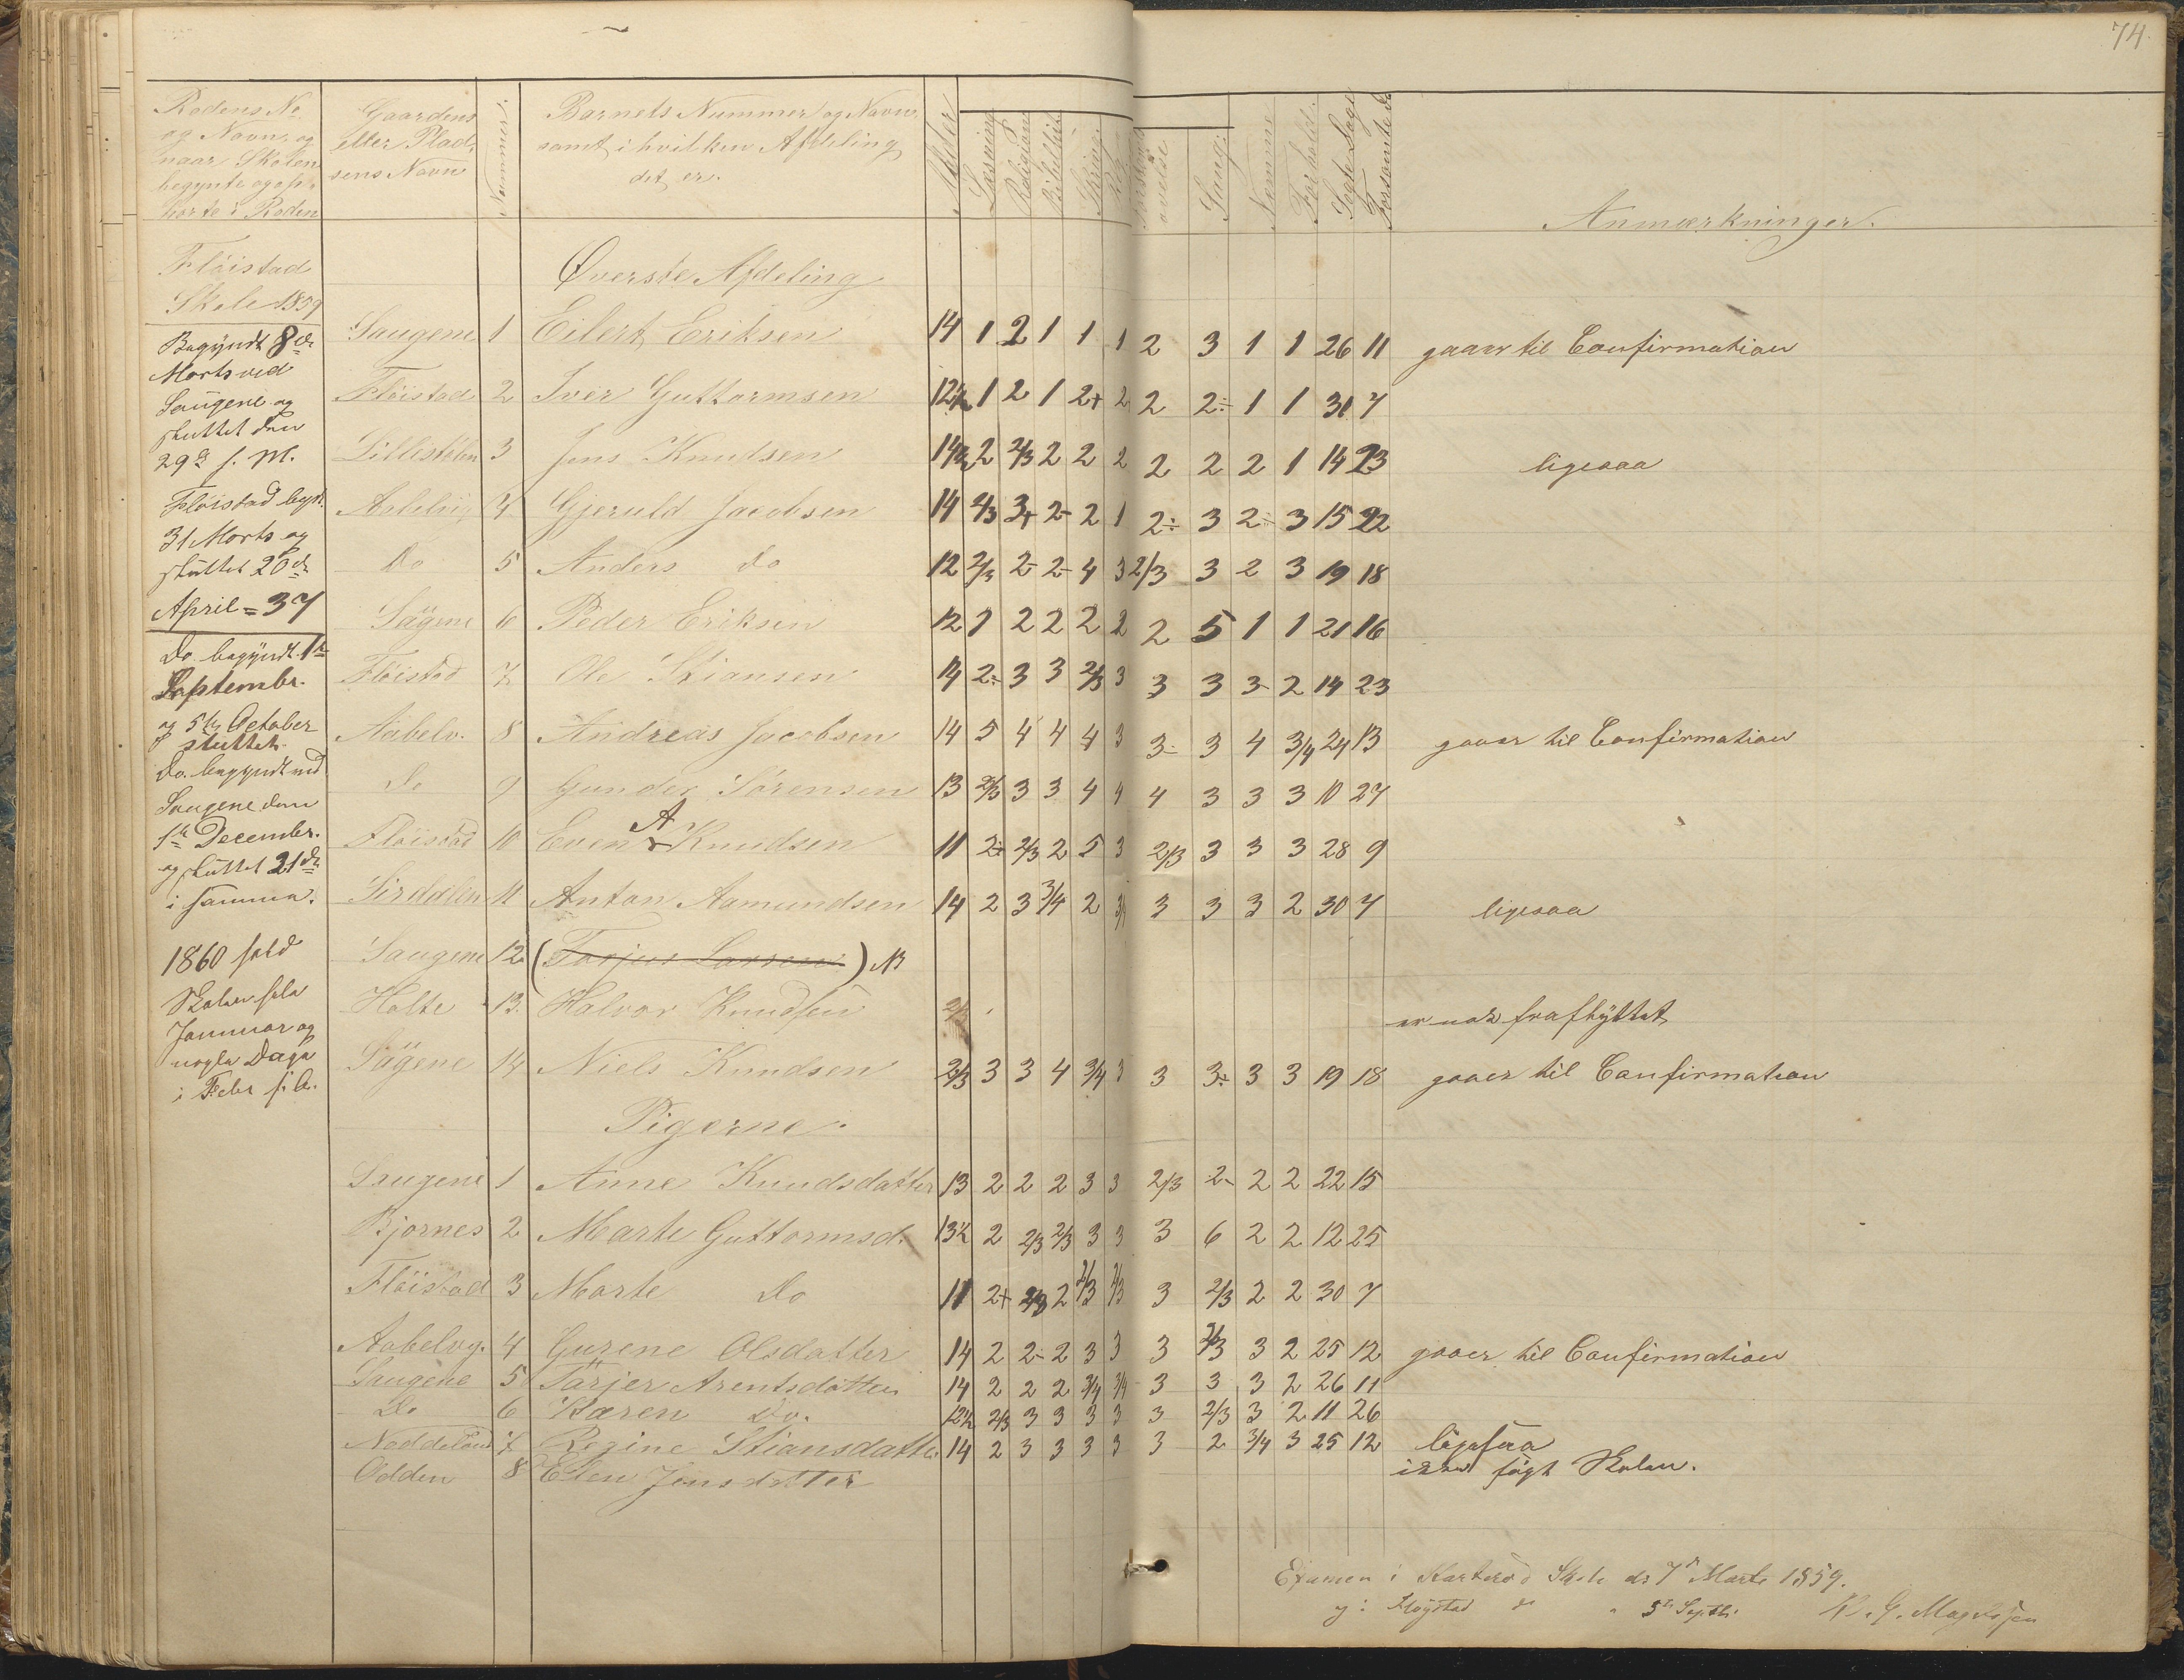 74.
Rodens No
og Navn, og
naar Skolen
begynte og op-
hørte i Roden
Gaardens
eller Plad-
sens Navn
Nummer.
Barnets Nummer og Navn,
samt i hvilken Afdeling
det er.
Alder
Læsning
Religion
Skriv.
Sang.
Nemme
Forhold.
Søgte Dage
Forsømte Do
Anmærkninger.
Fløistad
Skole 1859
Begyndt 8de
Marts ved
Saugene og
sluttet den
29de s. M.
Fløistad begt.
31 Marts og
sluttet 20de
April = 37
Do. begyndt 1te
Septembr.
og 5te October
sluttet.
Do. begyndt ved
Saugene den
1te December.
og sluttet 21de
i samme.
1860 hold
Skolen hele
Januar og
nogle Dage
i Febr s. A.
Øverste Afdeling
Saugene 1 Eilert Eriksen 14 1 2 1 1 1 2 3 1 1 26 11 gaaer til Confirmation
Fløistad 2 Iver Guttormsen 12½ 1 2 1 2+ 2 2 2÷ 1 1 30 7
Lillestølen 3 Jens Knudsen 14½ 2 2/3 2 2 2 2 2 2 1 14 23 ligesaa
Aabelvig 4 Gjeruld Jacobsen 14 2/3 3+ 2- 2 1 2÷ 3 2÷ 3 15 22
Do 5 Anders do 12 2/3 2- 2- 4 3 2/3 3 2 3 19 18
Sagene 6 Peder Eriksen 12 1 2 2 2 2 2 5 1 1 21 16
Fløistad 7 Ole Stiansen 14 2÷ 3 3 2/3 3 3 3 3- 2 14 23
Aabelv. 8 Andreas Jacobsen 14 5 4 4 4 3 3- 3 4 3/4 24 13 gaaer til Confirmation
Do 9 Gunder Sørensen 13 2/3 3 3 4 4 4 3 3 3 10 27
Fløistad 10 Even A Knudsen 11 2+ 2/3 2 5 3 2/3 3 3 3 28 9
Sirdalen 11 Anton Aamundsen 14 2 3 3/4 2 3/4 3 3 3 2 30 7 ligesaa
Saugene 12 (Tarjer Larsen) NB
Holte 13. Halvor Knudsen er nok fraflyttet
Sagene 14 Niels Knudsen 2/3 3 3 4 3/4 3 3 3÷ 3 3 19 18 gaaer til Confirmation
Pigerne.
Saugene 1 Anne Knudsdatter 13 2 2 2 3 3 2/3 2- 2 2 22 15
Bjornes 2 Marte Guttormsd. 13½ 2 2/3 2/3 3 3 3 6 2 2 12 25
Fløistad 3 Marte Do 11 2+ 2/3 2 2/3 2/3 3 2/3 2 2 30 7
Aabelvg. 4 Gurene Olsdatter 14 2 2- 2 3 3 3 2/3 3 2 25 12 gaaer til Confirmation
Saugene 5 Tarjer Arentsdatter 14 2 2 2 3/4 3/4 3 3 3 2 26 11
Do 6 Karen Do. 12½ 2/3 3 3 3 3 3 2/3 3 2 11 26
Noddeland 7 Regine Stiansdatter 14 2 3 3 3 3 3 2 3/4 3 25 12 ligesaa
Odden 8 Elen Jensdatter ikke søgt Skolen.
Examen i Skole d. 7de Marts 1859.
og i Fløystad do " 5te Septbr.